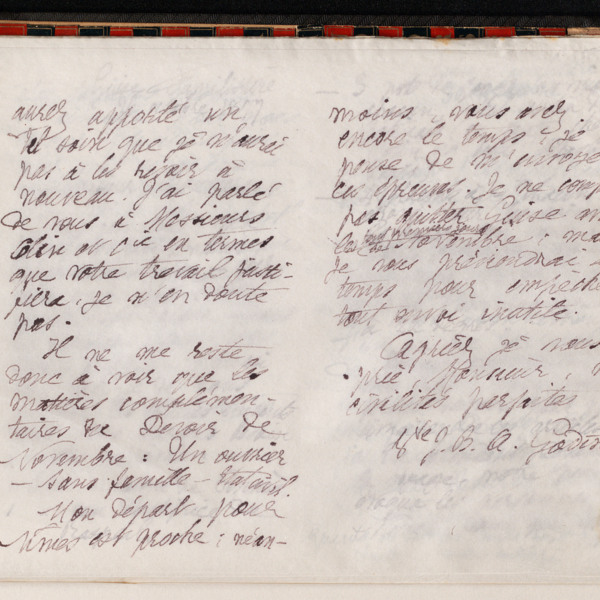 aurez apporté un
tel soin que je n'aurai
pas à les revoir à
nouveau. J'ai parlé
de vous à Messieurs
et Cie en termes
que votre travail justi-
fiera, je n'en doute
pas.
Il ne me reste
donc à voir que les
matières complémen-
taires du Devoir de
Novembre : Un ouvrier
– sans famille –
Mon départ pour
Nîmes est proche ; néan-
moins, vous avez
encore le temps, je
pense, de m'envoye
ces épreuves. Je ne comp
pas quitter Guise av
les premiers jours
de Novembre ; mai
je vous préviendrai
temps pour empêche
tout envoi inutile.
Agréez je vous
prie, Monsieur,
civilités parfaites
Vve J. B. A. Godin